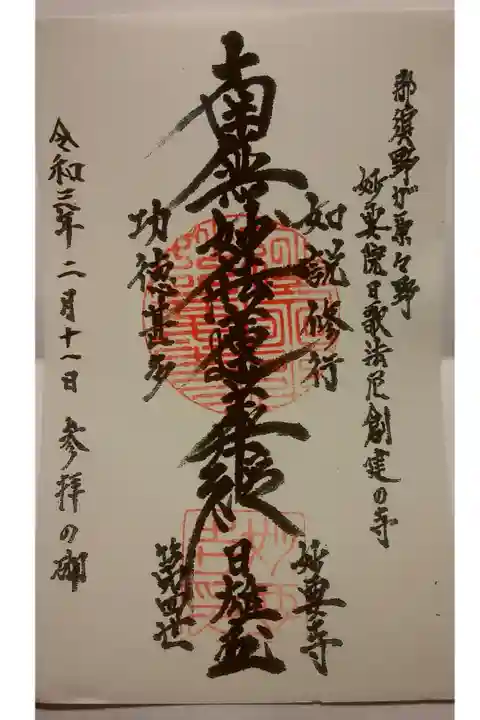 那須野が原々野
妙要院日歌法尼創建の寺
如説修行
南無妙法蓮華経
功徳甚多
妙要寺
日雄
第四世
令和三年二月十一日 参拝の砌